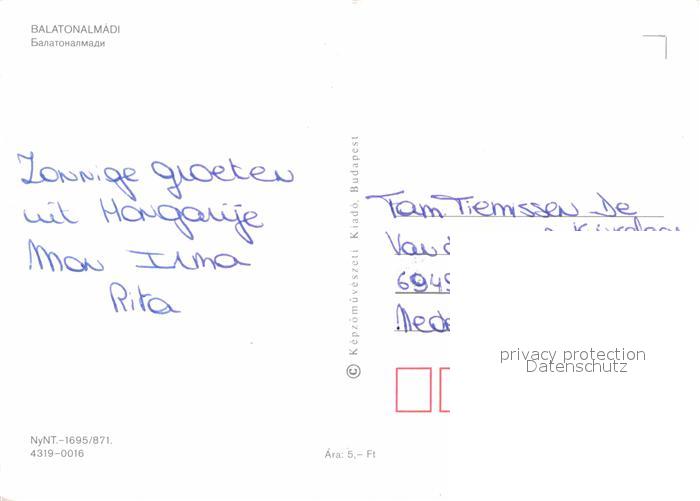 BALATONALMÁDI
Балатоналмади
Zonnige groeten
uit Hongarije
Man Irma
Rita
© Képzőművészeti Kiadó, Budapest
Fam. Tiemissen De
Van
6949
Nede
privacy protection
Datenschutz
NyNT.–1695/871.
4319–0016
Ára: 5,– Ft